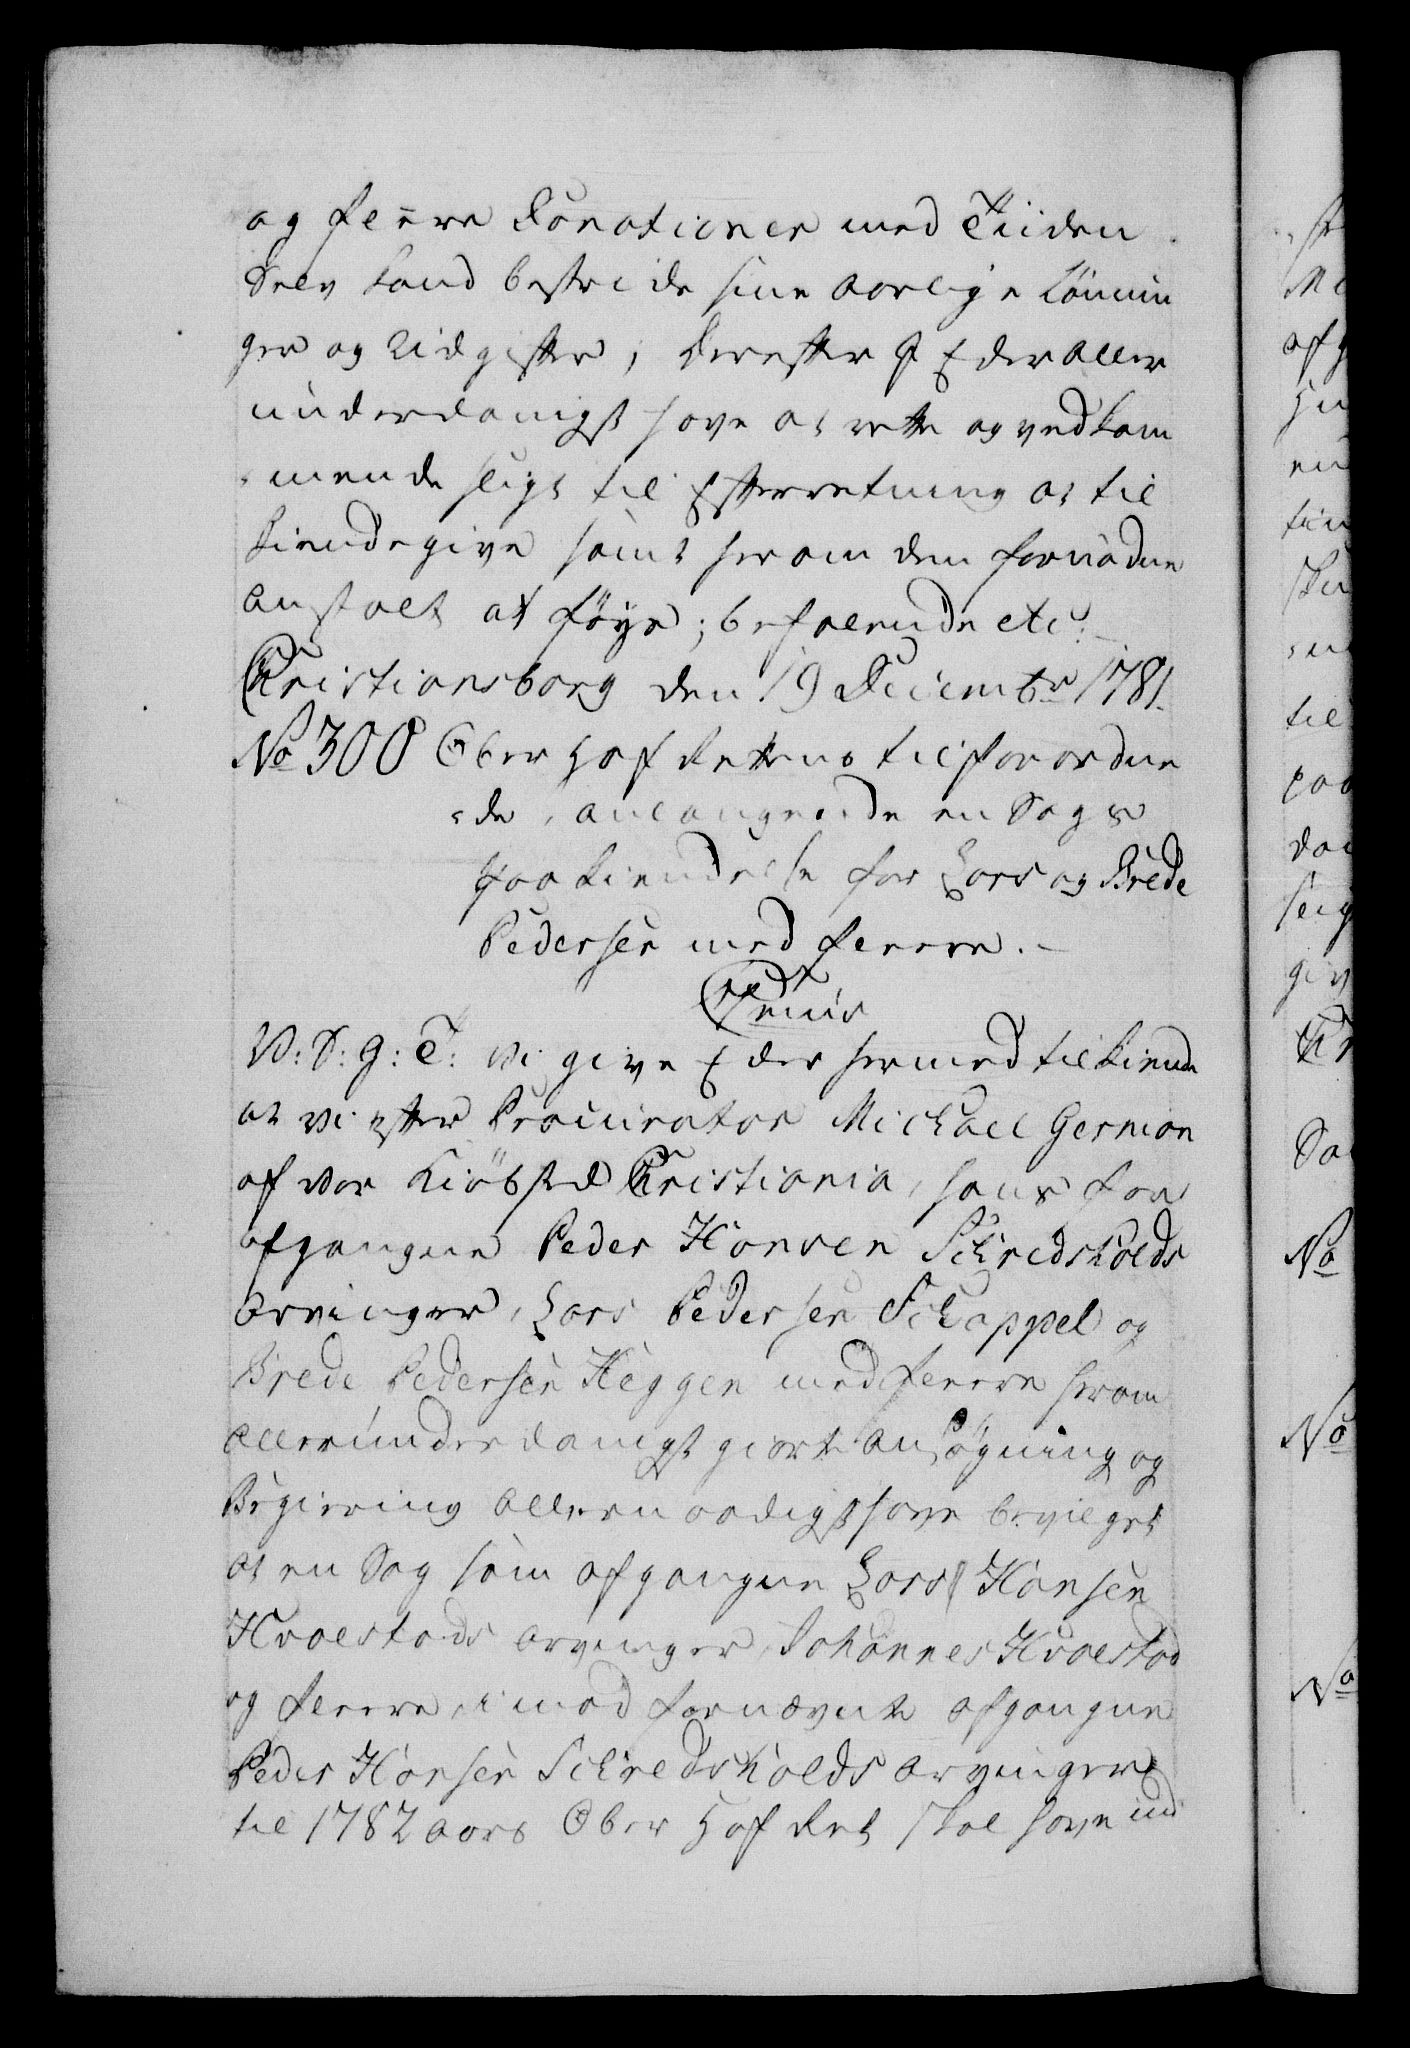 og fleere Donationer med Tiiden
Selv kand bestride sine aarlige Lönnin
ger og Udgifter; Derefter I Eder aller
underdanigst have at rette og vedkom
mende sligt til Efterretning at til
kiendegive samt herom den fornødne
anstalt at föye; befalende etc:
Christiansborg den 19 Decembr 1781.
No 300 Ober Hof Rettens tilforordne
de, anlangende en Sags
Paakiendelse for Lars og Brede
Pedersen med fleere.
V: S: G: T: Vi give Eder hermed tilkiende
at Vi efter Procurator Michael German
af Vor Kiöbsted Christiania, hans for
afgangne Peder Hansen Schredsholds
Arvinger, Lars Pedersen Schappel og
Brede Pedersen Heggen med fleere herom
allerunderdanigst giorte Ansögning og
Begiering allernaadigst have bevilget
at en Sag som afgangne Lars Hansen
Hvalstads arvinger, Johannes Hvalstad
og fleere, imod fornævnte afgangne
Peder Hansen Schredsholds Arvinger
til 1782 aars Ober Hof Ret skal have ind